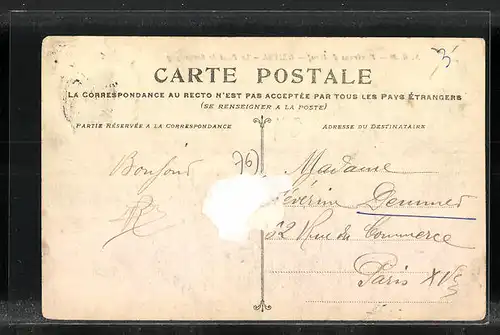 3
CARTE POSTALE
LA CORRESPONDANCE AU RECTO N'EST PAS ACCEPTÉE PAR TOUS LES PAYS ÉTRANGERS
(SE RENSEIGNER A LA POSTE)
PARTIE RÉSERVÉE A LA CORRESPONDANCE
ADRESSE DU DESTINATAIRE
Bonjour
76)
Madame
éverine
2 Rue du Commerce
Paris XVe